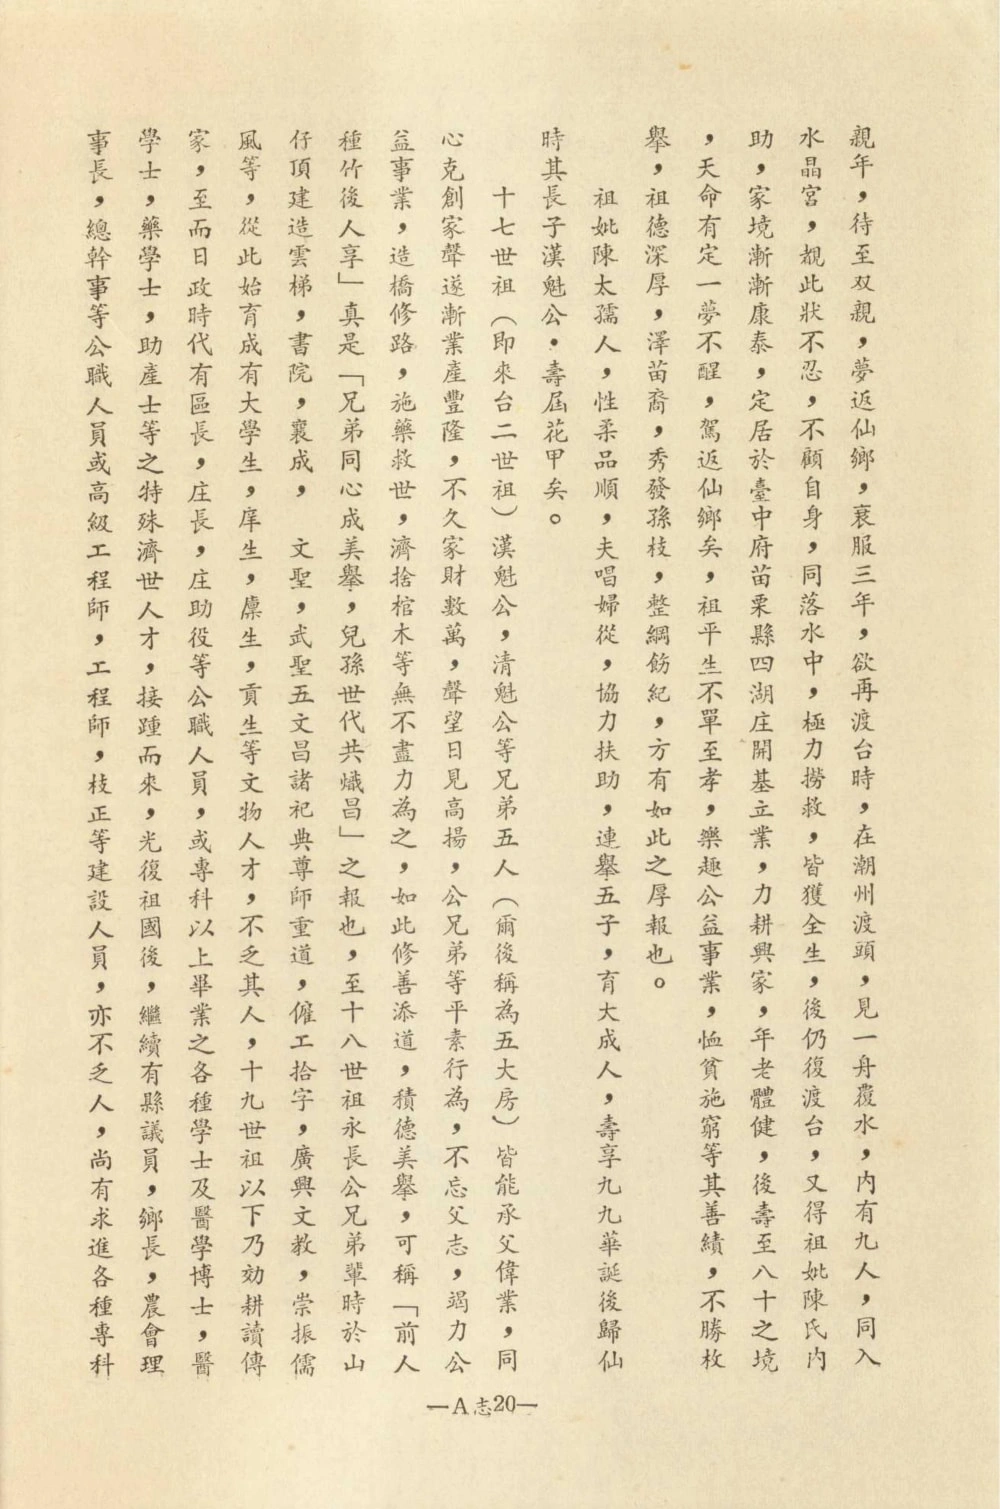 親年，待至双親，夢返仙鄉，衰服三年，欲再渡台時，在潮州渡頭，見一舟覆水，內有九人，同入
水晶宮，覩此狀不忍，不顧自身，同落水中，極力撈救，皆獲全生，後仍復渡台，又得祖妣陳氏內
助，家境漸漸康泰，定居於臺中府苗栗縣四湖庄開基立業，力耕興家，年老體健，後壽至八十之境
，天命有定一夢不醒，駕返仙鄉矣，祖平生不單至孝，樂趣公益事業，恤貧施窮等其善績，不勝枚
舉，祖德深厚，澤苗裔，秀發孫枝，整綱飭紀，方有如此之厚報也。
祖妣陳太孺人，性柔品順，夫唱婦從，協力扶助，連舉五子，育大成人，壽享九九華誕後歸仙
時其長子漢魁公・壽屆花甲矣。
十七世祖（即來台二世祖）漢魁公，清魁公等兄弟五人（爾後稱為五大房）皆能承父偉業，同
心克創家聲遂漸業產豐隆，不久家財數萬，聲望日見高揚，公兄弟等平素行為，不忘父志，竭力公
益事業，造橋修路，施藥救世，濟捨棺木等無不盡力為之，如此修善添道，積德美舉，可稱「前人
種竹後人享」真是「兄弟同心成美舉，兒孫世代共熾昌」之報也，至十八世祖永長公兄弟輩時於山
仔頂建造雲梯，書院，襄成，　文聖，武聖五文昌諸祀典尊師重道，僱工拾字，廣興文教，崇振儒
風等，從此始育成有大學生，庠生，廩生，貢生等文物人才，不乏其人，十九世祖以下乃効耕讀傳
家，至而日政時代有區長，庄長，庄助役等公職人員，或專科以上畢業之各種學士及醫學博士，醫
學士，藥學士，助產士等之特殊濟世人才，接踵而來，光復祖國後，繼續有縣議員，鄉長，農會理
事長，總幹事等公職人員或高級工程師，工程師，枝正等建設人員，亦不乏人，尚有求進各種專科
—A志20—